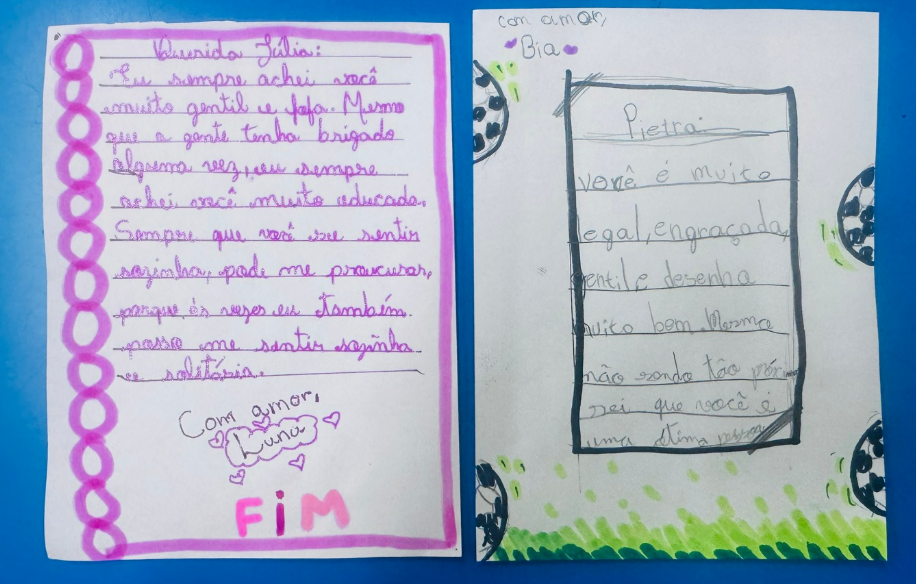 Querida Júlia:
Eu sempre achei você
muito gentil e fofa. Mesmo
que a gente tenha brigado
alguma vez, eu sempre
achei você muito educada.
Sempre que você se sentir
sozinha, pode me proucurar,
porque ás vezes eu também
posso me sentir sozinha
e solitária.
Com amor,
Luna
FiM
com amor,
Bia
Pietra
você é muito
legal, engraçada,
gentil e desenha
muito bem. Mesmo
não sendo tão
sei que você é
uma ótima pessoa